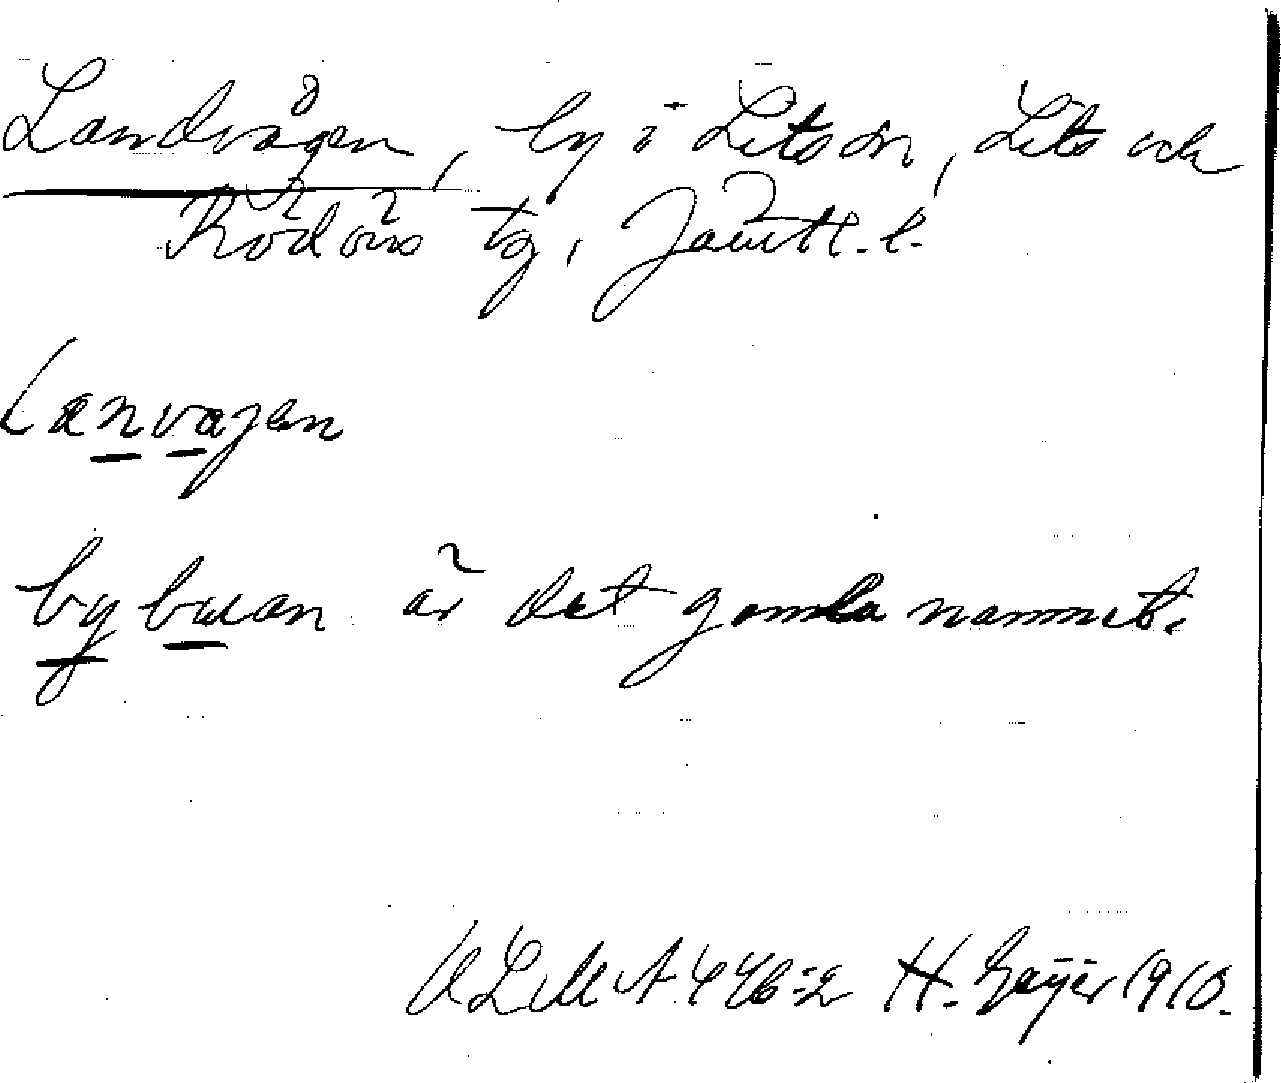 Landvågen, by i Lits sn, Lits och
Rödöns tg, Jämtl. l.
lanvagen
bybuan är det gamla namnet.
ULMA 446:2 H. Geijer 1910.